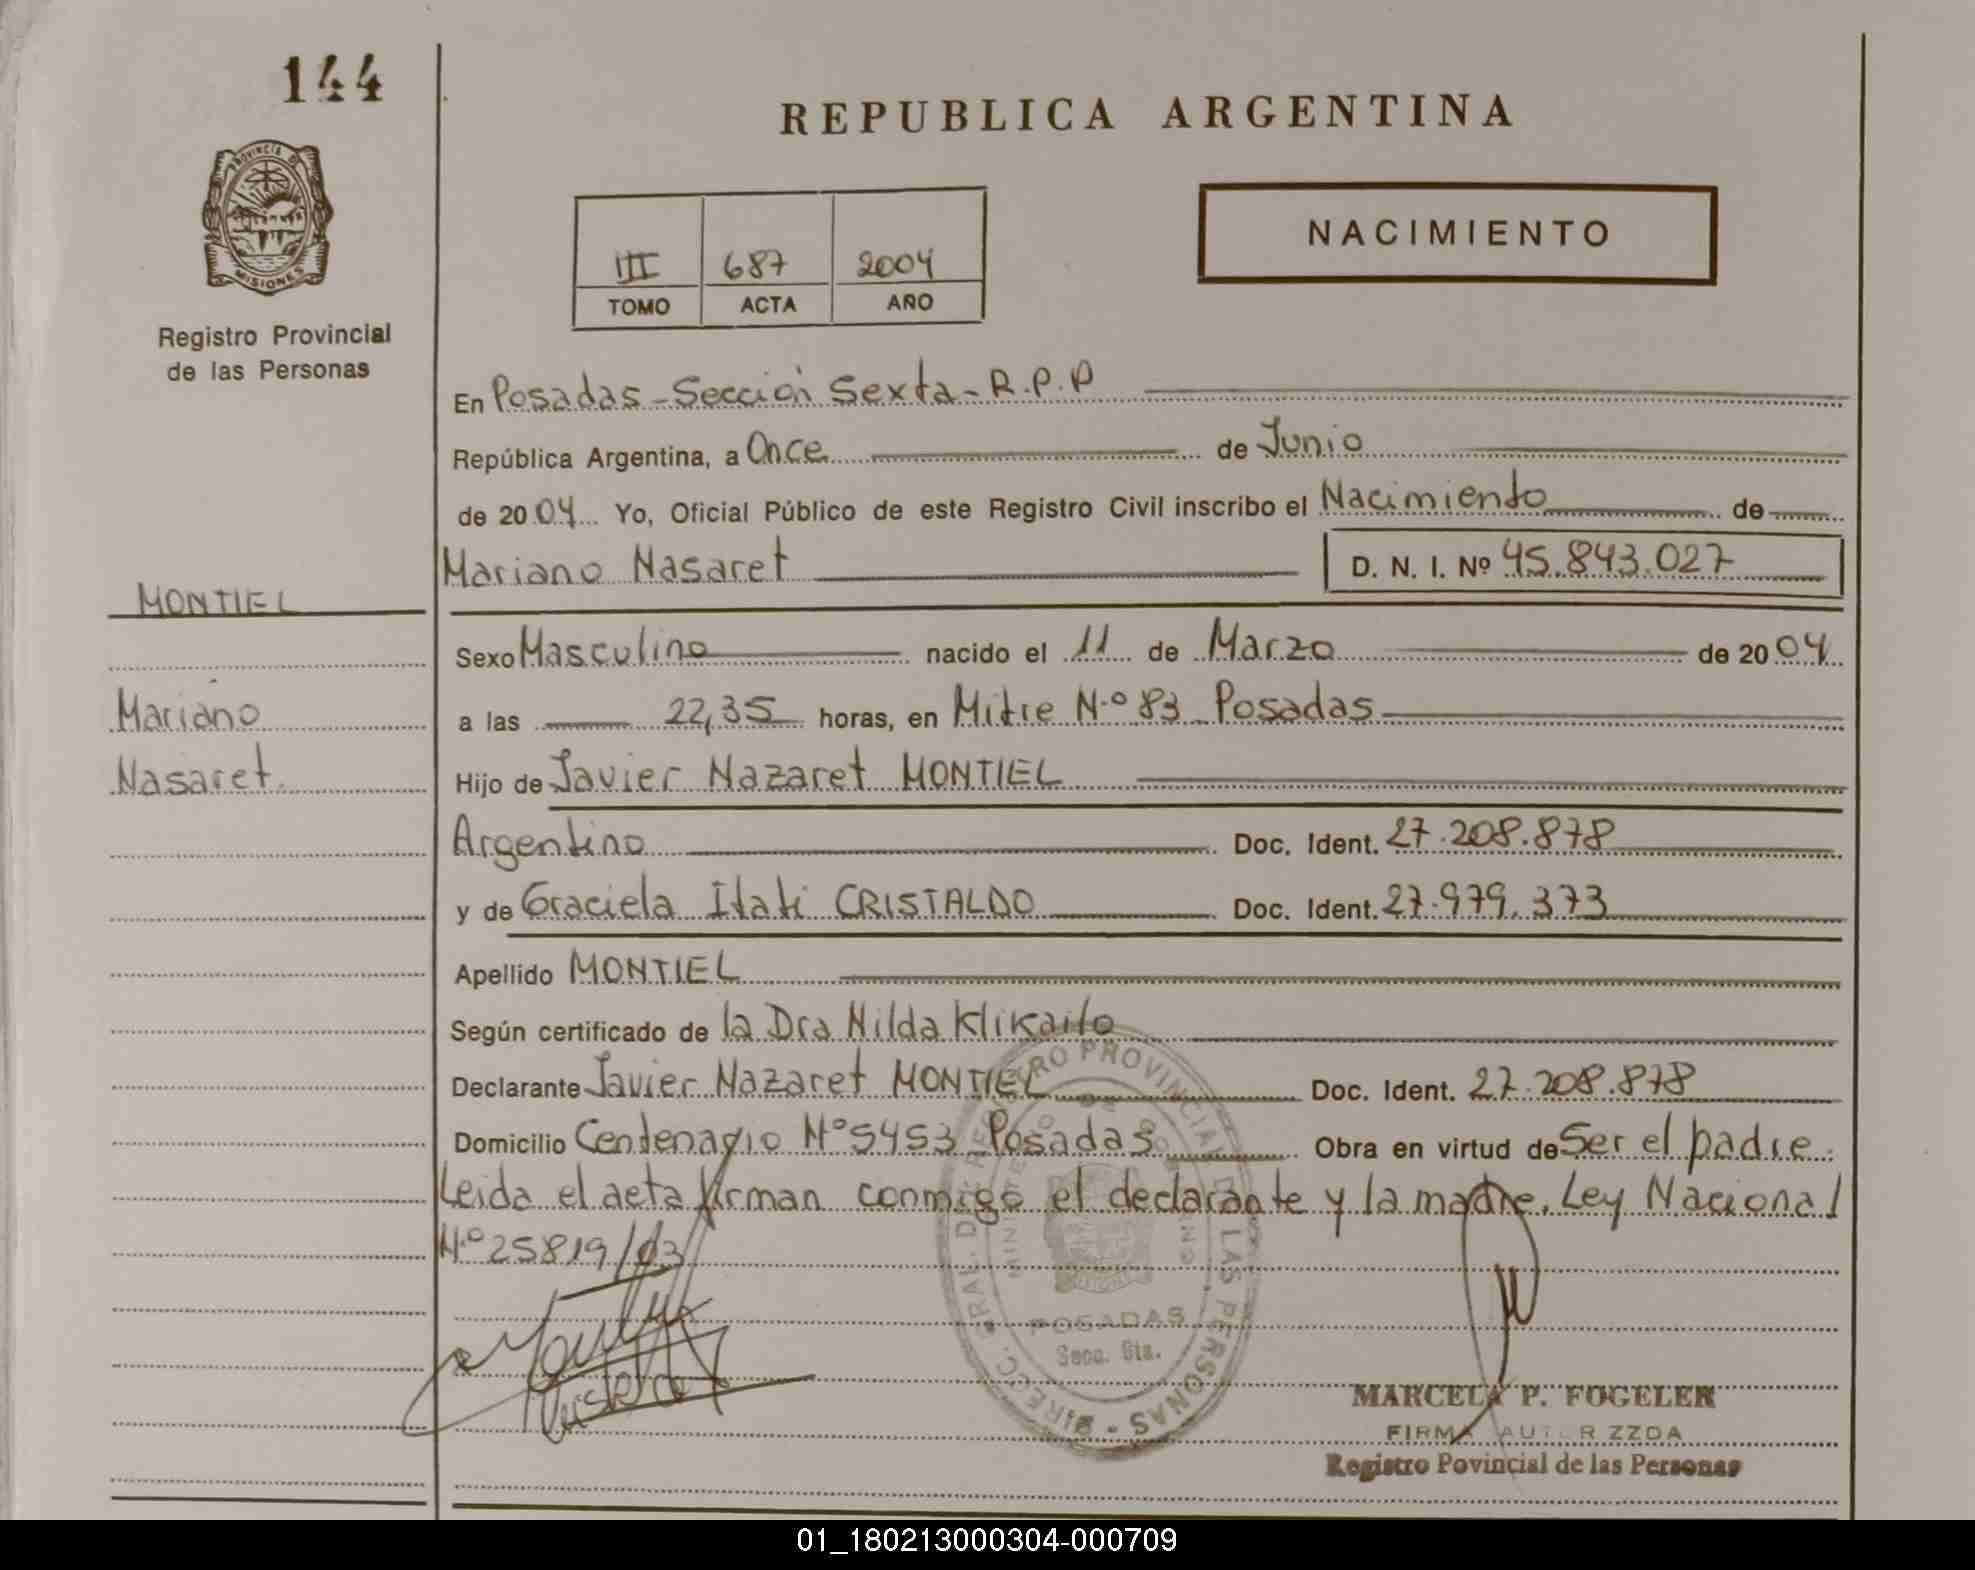 144
REPUBLICA ARGENTINA
PROVINCIA DE
MISIONES
Registro Provincial
de las Personas
NACIMIENTO
III 687 2004
TOMO ACTA AÑO
En Posadas - Sección Sexta - R.P.P
República Argentina, a Once de Junio
de 2004 Yo, Oficial Público de este Registro Civil inscribo el Nacimiento de
Mariano Nasaret D. N. I. Nº 45.843.027
MONTIEL
Mariano
Nasaret.
Sexo Masculino nacido el 11 de Marzo de 2004
a las 22,35 horas, en Mitre N.º 83 Posadas
Hijo de Javier Nazaret MONTIEL
Argentino Doc. Ident. 27.208.878
y de Graciela Itati CRISTALDO Doc. Ident. 27.979.373
Apellido MONTIEL
Según certificado de la Dra Nilda Klikailo
Declarante Javier Nazaret MONTIEL Doc. Ident. 27.208.878
Domicilio Centenario Nº 5453 Posadas Obra en virtud de Ser el padre.
Leida el acta firman conmigo el declarante y la madre. Ley Nacional
N.º 25819/03
DIRECC. GRAL. DE REGISTRO PROVINCIAL DE LAS PERSONAS
MINISTERIO DE GOB
POSADAS
Secc. 6ta.
MARCELA P. FOGELER
FIRMA AUTORIZZDA
Registro Povincial de las Personas
01_180213000304-000709